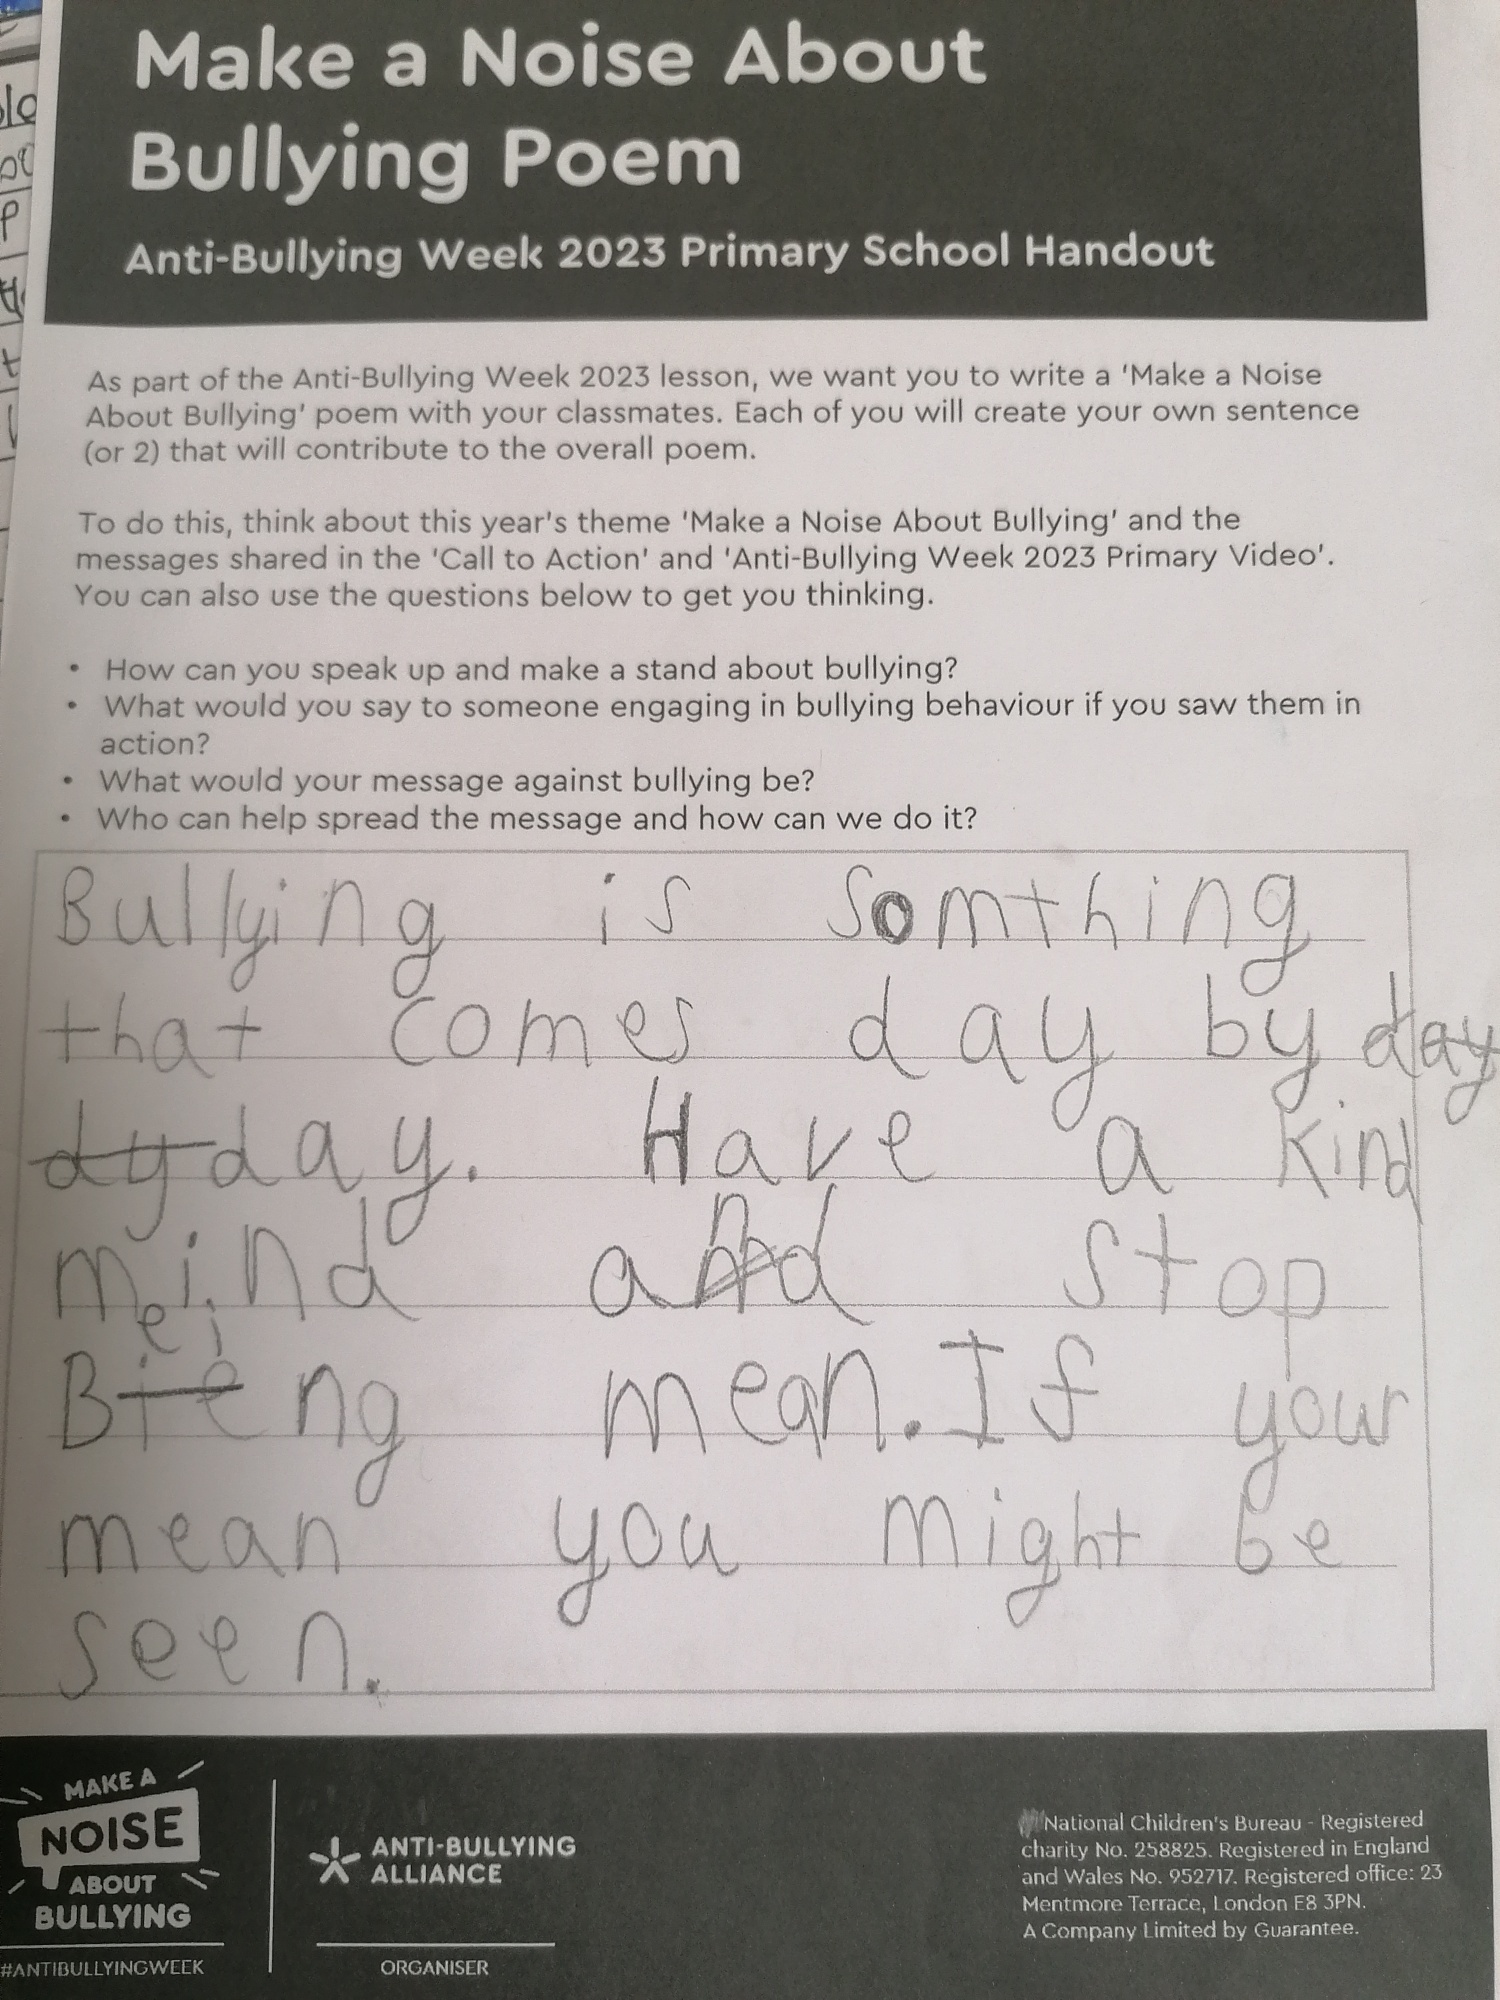 Make a Noise About
Bullying Poem
Anti-Bullying Week 2023 Primary School Handout
As part of the Anti-Bullying Week 2023 lesson, we want you to write a 'Make a Noise
About Bullying' poem with your classmates. Each of you will create your own sentence
(or 2) that will contribute to the overall poem.
To do this, think about this year's theme 'Make a Noise About Bullying' and the
messages shared in the 'Call to Action' and 'Anti-Bullying Week 2023 Primary Video'.
You can also use the questions below to get you thinking.
• How can you speak up and make a stand about bullying?
• What would you say to someone engaging in bullying behaviour if you saw them in
action?
• What would your message against bullying be?
• Who can help spread the message and how can we do it?
Bullying is somthing
that comes day by day
dy day. Have a kind
mind and stop
Being mean. If your
mean you might be
seen.
MAKE A
NOISE
ABOUT
BULLYING
#ANTIBULLYINGWEEK
ANTI-BULLYING
ALLIANCE
ORGANISER
National Children's Bureau - Registered
charity No. 258825. Registered in England
and Wales No. 952717. Registered office: 23
Mentmore Terrace, London E8 3PN.
A Company Limited by Guarantee.